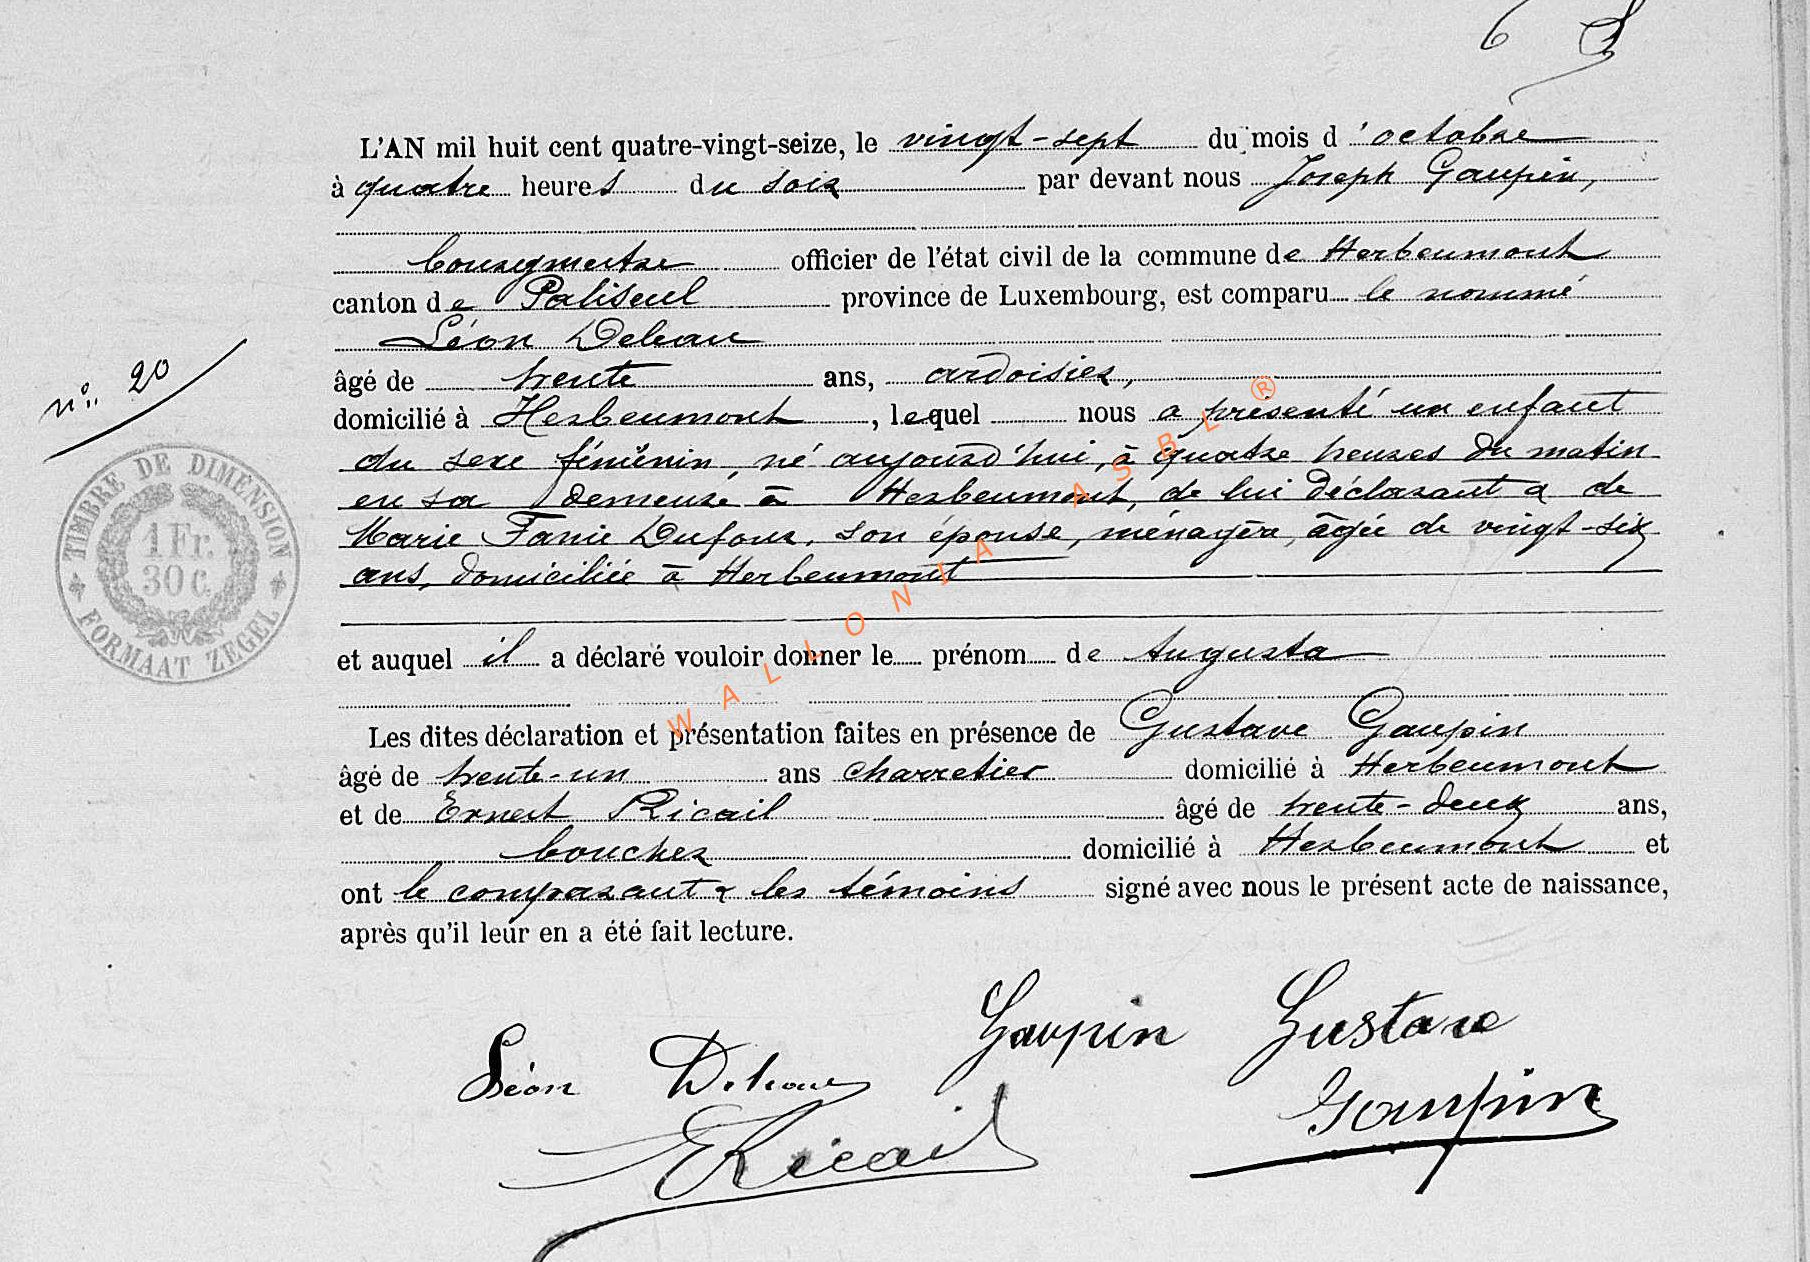 6
L'AN mil huit cent quatre-vingt-seize, le vingt-sept du mois d'octobre
à quatre heures du soir par devant nous Joseph Gaupin,
bourgmestre officier de l'état civil de la commune de Herbeumont
canton de Paliseul province de Luxembourg, est comparu le nommé
Léon Deleau
âgé de trente ans, ardoisier,
nº 20
domicilié à Herbeumont, lequel nous a présenté un enfant
du sexe féminin, né aujourd'hui, à quatre heures du matin
en sa demeure à Herbeumont, de lui déclarant & de
Marie Fanie Dufour, son épouse, ménagère, âgée de vingt-six
ans, domiciliée à Herbeumont
TIMBRE DE DIMENSION
1 Fr.
30 c.
FORMAAT ZEGEL
et auquel il a déclaré vouloir donner le prénom de Augusta
Les dites déclaration et présentation faites en présence de Gustave Gaupin
âgé de trente-un ans charretier domicilié à Herbeumont
et de Ernest Ricail âgé de trente-deux ans,
boucher domicilié à Herbeumont et
ont le comparant & les témoins signé avec nous le présent acte de naissance,
après qu'il leur en a été fait lecture.
Gaupin Gustave
Léon Deleau
Gaupin
E Ricail
WALLONIA ASBL ®